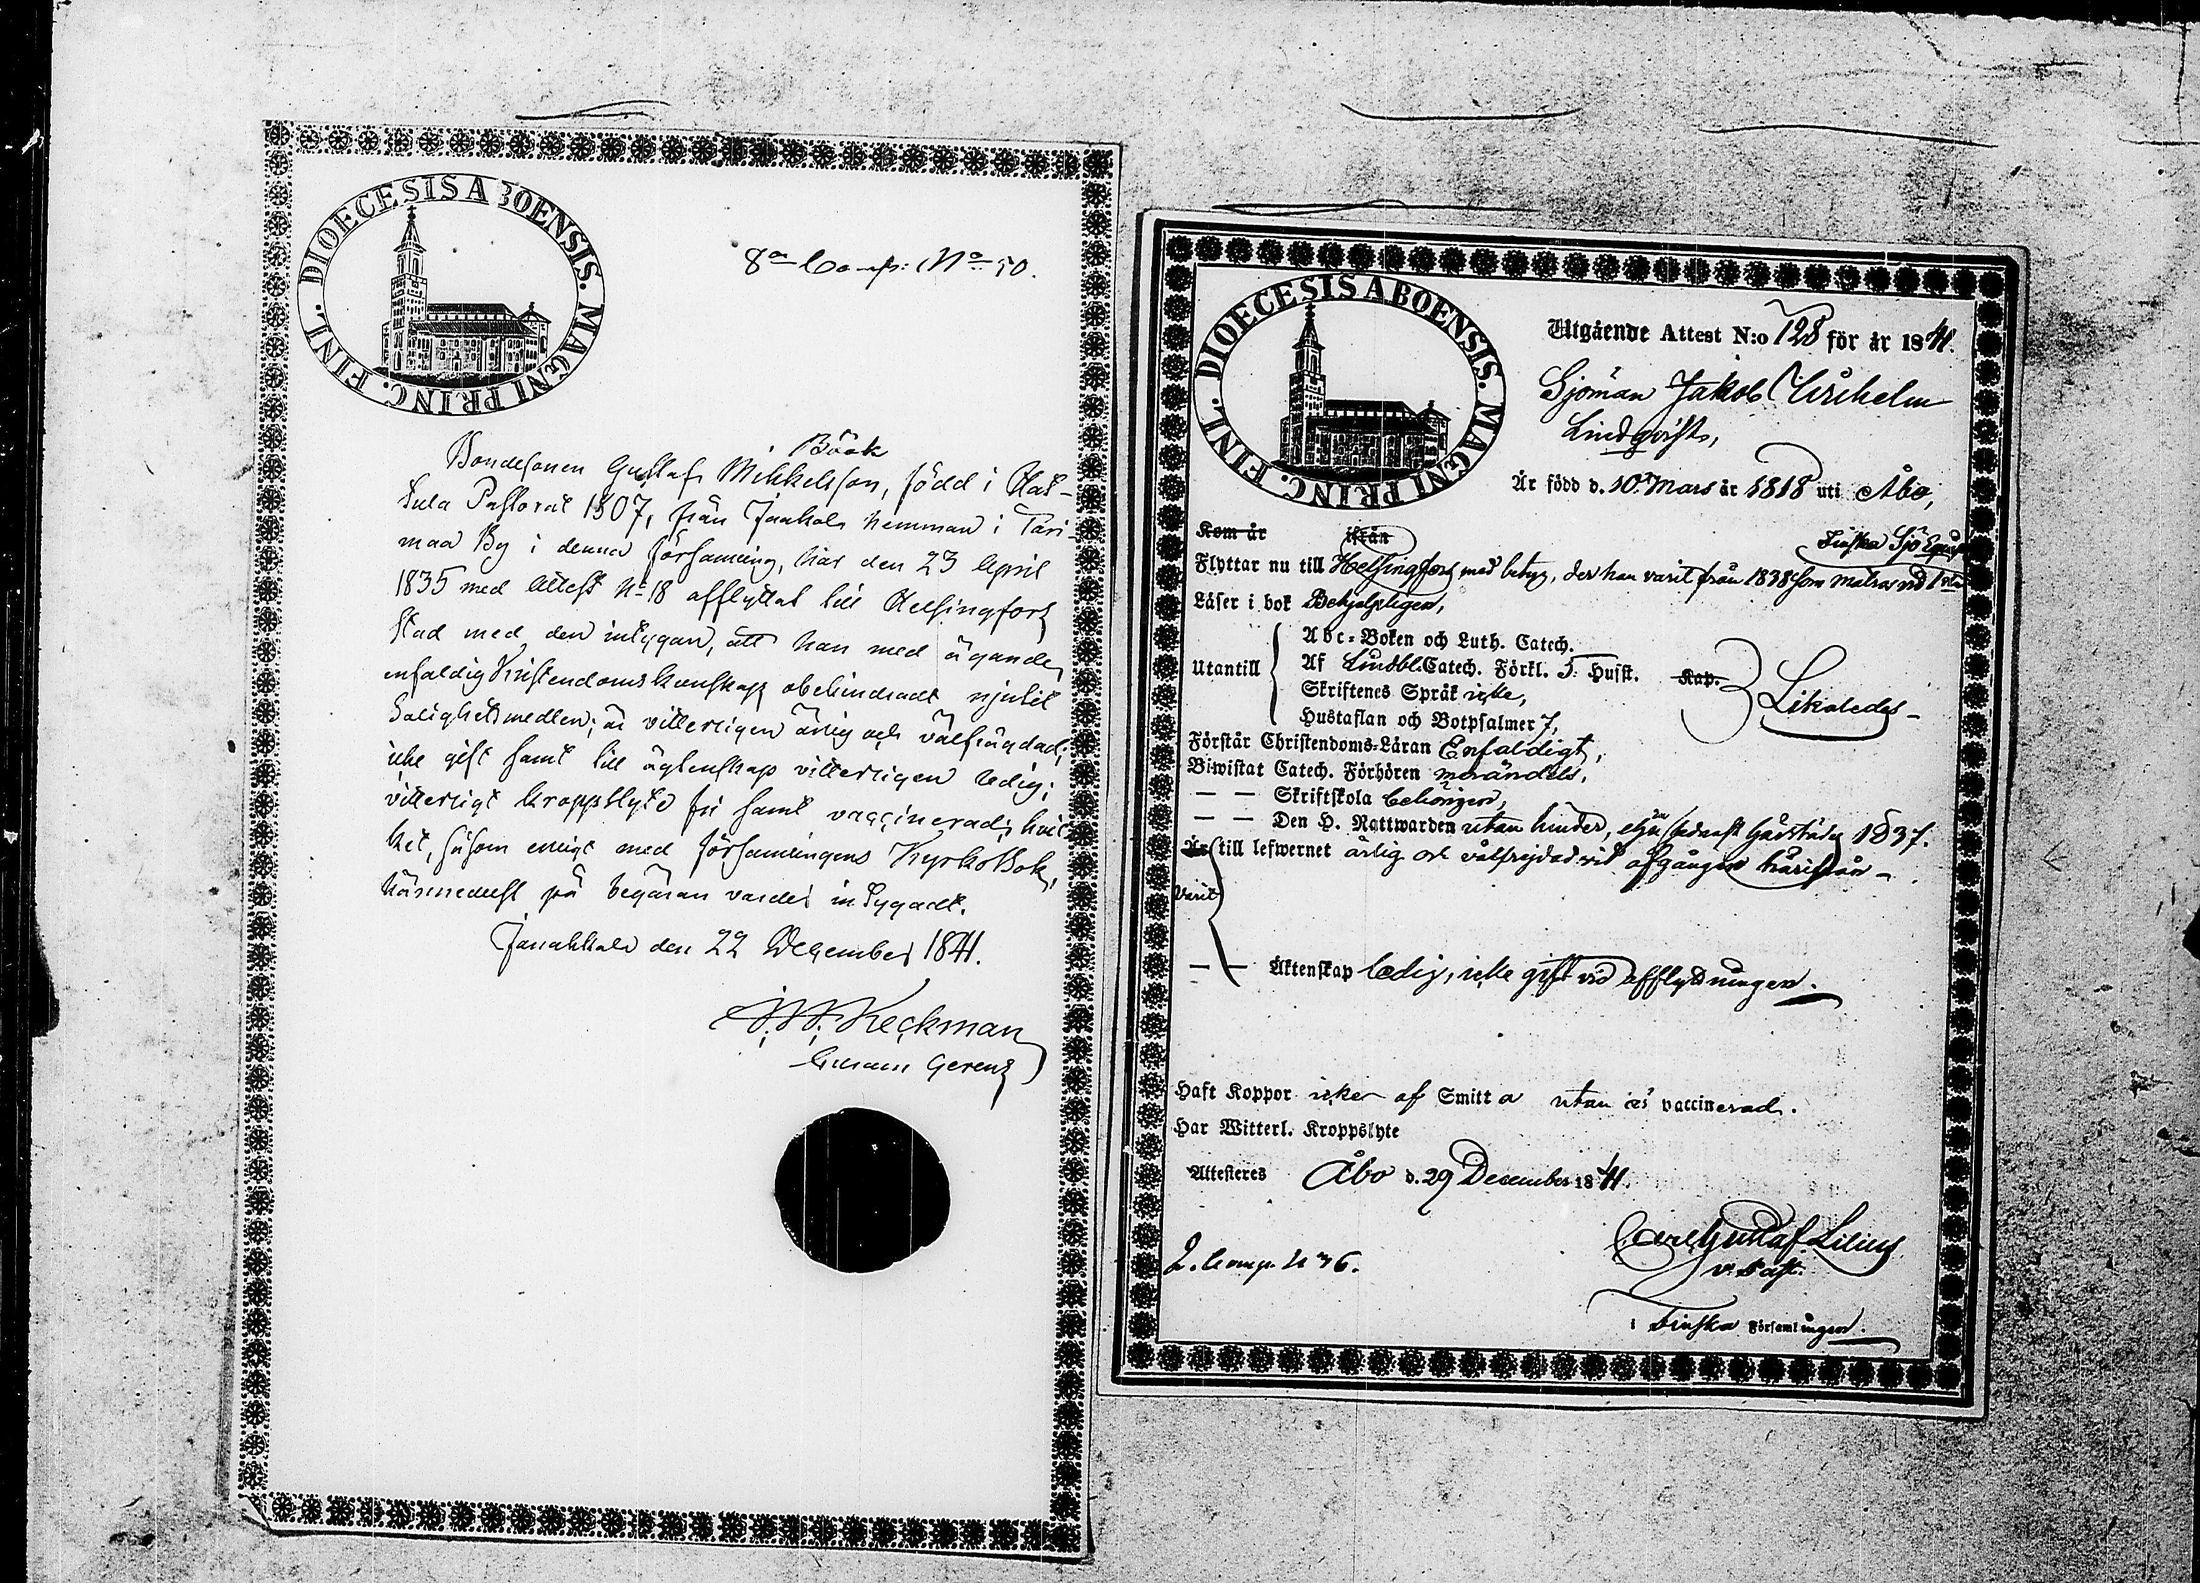 DIOECESIS ABOENSIS. MAGNI PRINC. FINL.
8a Comp: No 50.
Böök
Bondesonen Gustaf Mikkelsson, född i Hat-
tula Pastorat 1807, från Jaakola hemman i Tari-
maa By i denna församling, har den 23 April
1835 med Attest No 18 afflyttat till Helsingfors
stad med den intygan, att han med ägande
enfaldig Kristendomskunskap obehindradt njutit
Salighetsmedlen; är vitterligen ärlig och välfrägdad;
icke gift samt till äktenskap vitterligen ledig;
vitterligt kroppslyte fri samt vaccinerad; hvil-
ket, såsom enligt med församlingens Kyrkobok,
härmedelst på begäran varder intygadt.
Janakkala den 22 December 1841.
Keckman
Gerens
DIOECESIS ABOENSIS. MAGNI PRINC. FINL.
Utgående Attest N:o 128 för år 1841.
Sjöman Jakob Wilhelm
Lindqvist,
Är född d. 10 Mars år 1818 uti Åbo,
Kom år ifrån
Finska Sjö Equip
Flyttar nu till Helsingfors med betyg, der han varit från 1838 som matros vid 1sta
Läser i bok Behjelpligen,
Utantill
Abc-Boken och Luth. Catech.
Af Lindbl. Catech. Förkl. 5. Hufst. Kap.
Skriftenes Språk icke,
Hustaflan och Botpsalmer 7,
Likaledes
Förstår Christendoms-Läran Enfaldigt,
Biwistat Catech. Förhören
— — Skriftskola behörigen,
— — Den H. Nattwarden utan hinder, ej sednast härstädes 1837.
Är till lefwernet ärlig och välfrejdad vid afgången härifrån —
Varit
— — Äktenskap ledig, icke gift vid afflyttningen.
Haft Koppor icke af Smitta utan är vaccinerad.
Har Witterl. Kroppslyte
Attesteres Åbo d. 29 December 1841.
Carl Gustaf Lilius
v. Past.
2. Comp. N 36.
i Finska Församlingen.